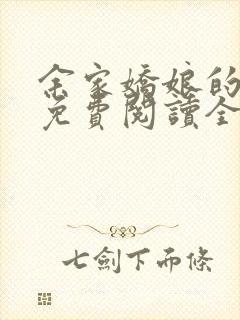 余家嬌娘的
免費閱讀全
七劍下而條